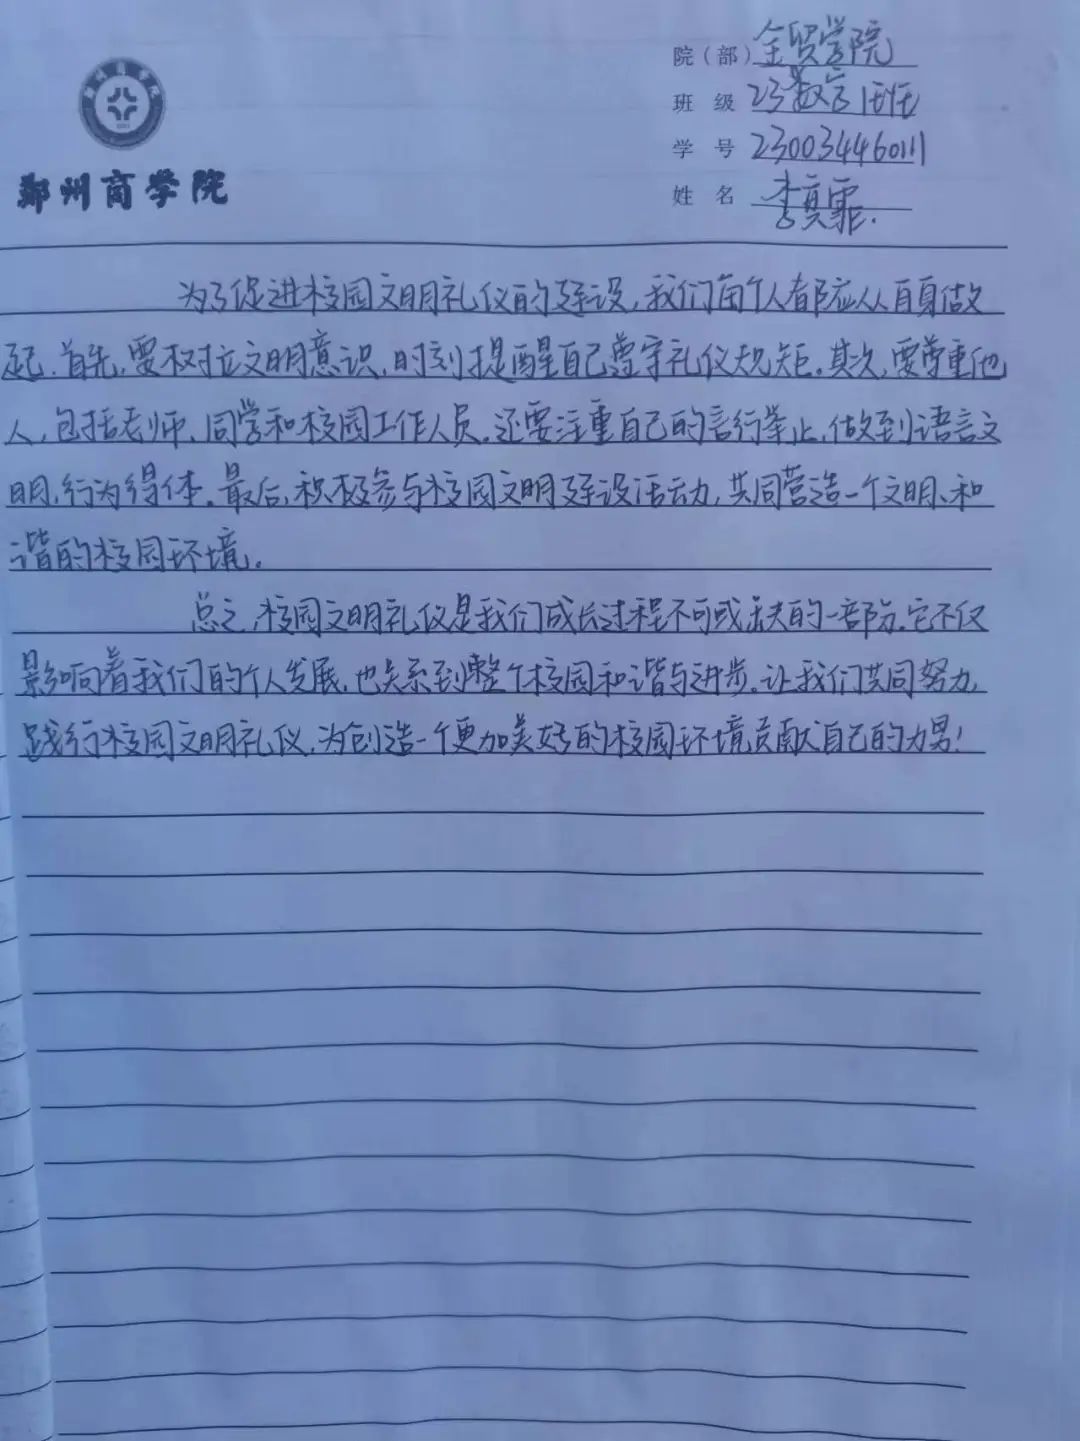 郑州商学院
院（部）金贸学院
班 级 23数字
学 号 230034460111
姓 名 李真霏.
为了促进校园文明礼仪的建设,我们每个人都应从自身做
起.首先,要树立文明意识,时刻提醒自己遵守礼仪规矩.其次,要尊重他
人,包括老师、同学和校园工作人员.还要注重自己的言行举止,做到语言文
明,行为得体.最后,积极参与校园文明建设活动,共同营造一个文明、和
谐的校园环境.
总之,校园文明礼仪是我们成长过程不可或缺的一部份.它不仅
影响着我们的个人发展,也关系到整个校园和谐与进步.让我们共同努力,
践行校园文明礼仪,为创造一个更加美好的校园环境贡献自己的力男!